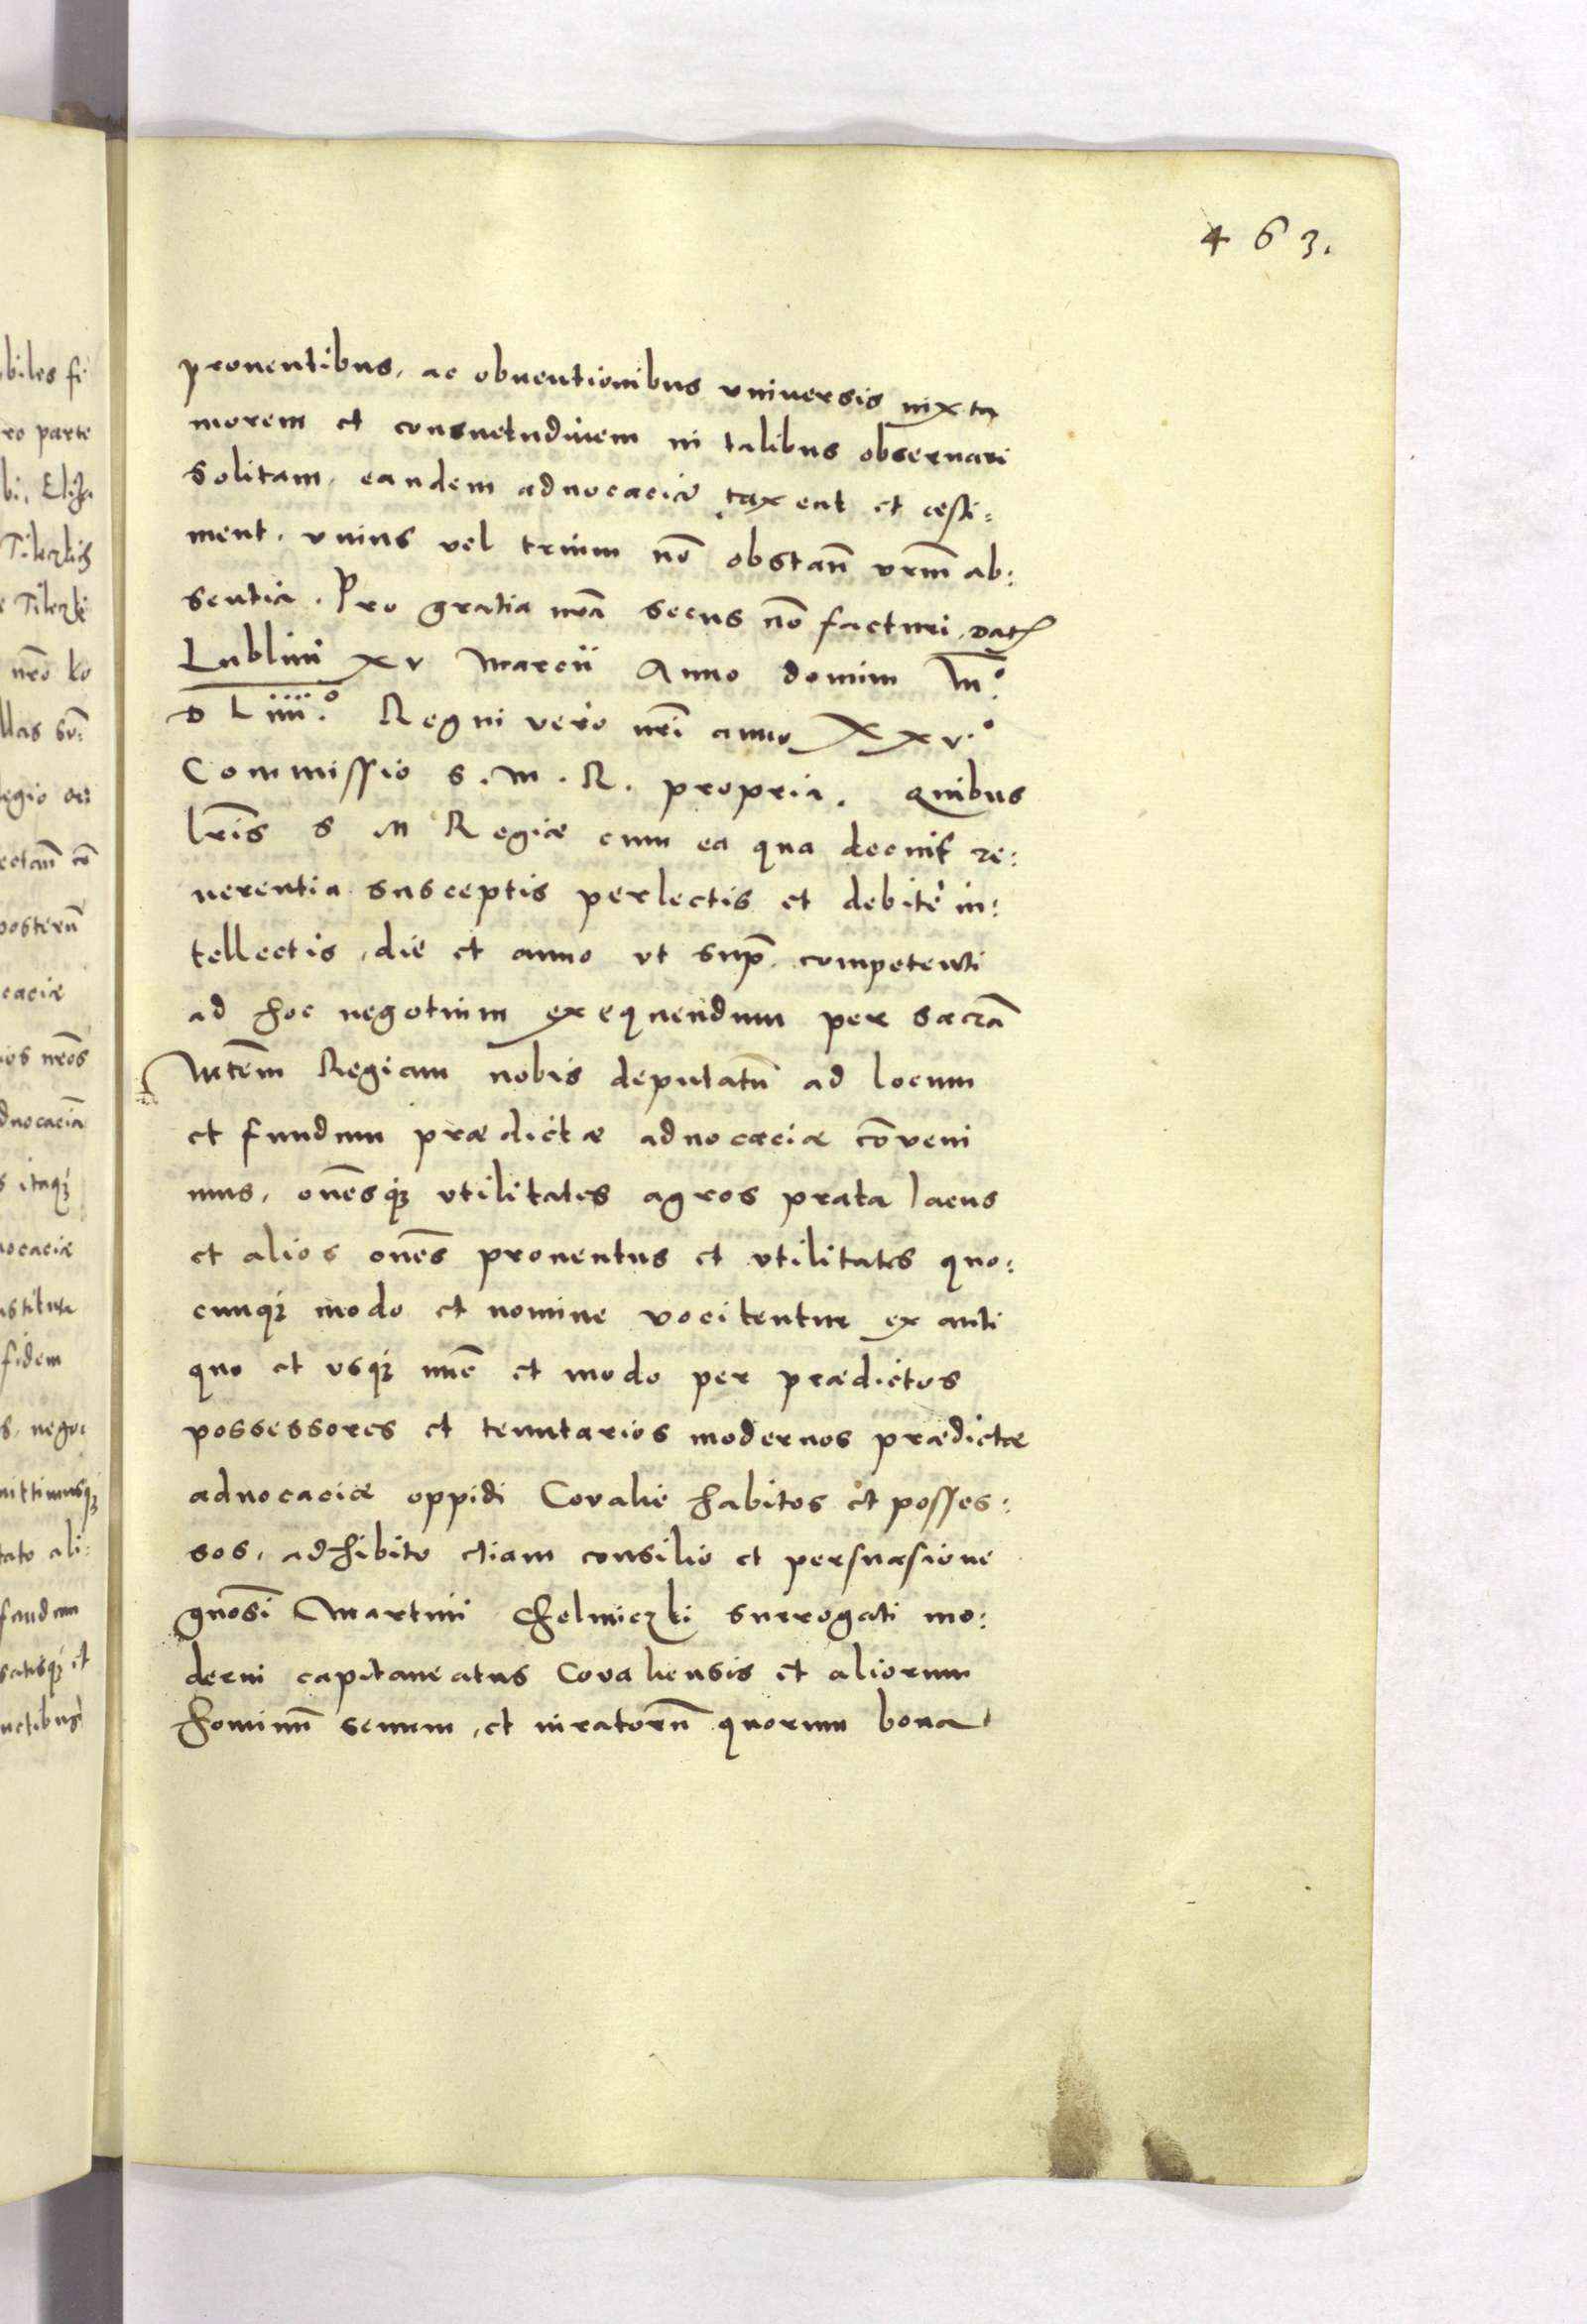 463.
prouentibus, ac obuentionibus vniuersis iuxta
morem et consuetudinem in talibus obseruari
solitam, eandem aduocaciã taxent et æsti:
ment, vnius vel trium nõ obstañ vrm̃ ab:
sentia. Pro gratia nr̃a secus nõ facturi. Dat
Lublini xv Marcii Anno domini M.º
D Liiii.º Regni vero nr̃i anno xxv.º
Commissio S. M. R. propria. Quibus
lr̃is S M Regiæ cum ea qua decuit re:
uerentia susceptis perlectis et debitè in:
tellectis, die et anno vt sup̃ competenti
ad hoc negotium exequendum per sacrã
Mtem̃ Regiam nobis deputatũ ad locum
et fundum prædictæ aduocaciæ cõveni
mus, om̃esq; vtilitates agros prata lacus
et alios om̃es prouentus et vtilitates quo:
cunq; modo et nomine vocitentur ex anti
quo et vsq; nũc et modo per prædictos
possessores et tenutarios modernos prædictæ
aduocaciæ oppidi Covalie habitos et posses:
sos, adhibito etiam consilio et persuasione
gñosi Martini Chelmiczki surrogati mo:
derni capitaneatus Covaliensis et aliorum
hominũ senum, et iuratorũ quorum bona
biles fi
ro parte
bi, Eliza
Tilczkis
Tilczki
nr̃o ko
llas
egio
posterũ
caciæ
ios nr̃os
duocaciã
s itaq;
ocaciæ
stituta
fidem
s, nego
mittimusq;
tato ali:
fandam
satisq; et
uctibus